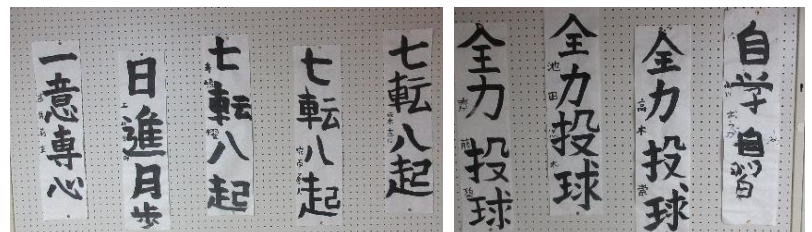 一意専心
日進月歩
七転八起
七転八起
七転八起
全力投球
全力投球
池田
全力投球
高木
自学自習